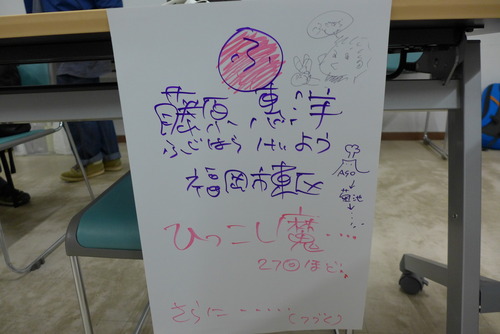 ふ
藤原 惠洋
ふじはら けいよう
福岡市東区
ASO
↓
菊池
↓
ひっこし魔・・・・
27回ほど。
さらに・・・・・とつづく